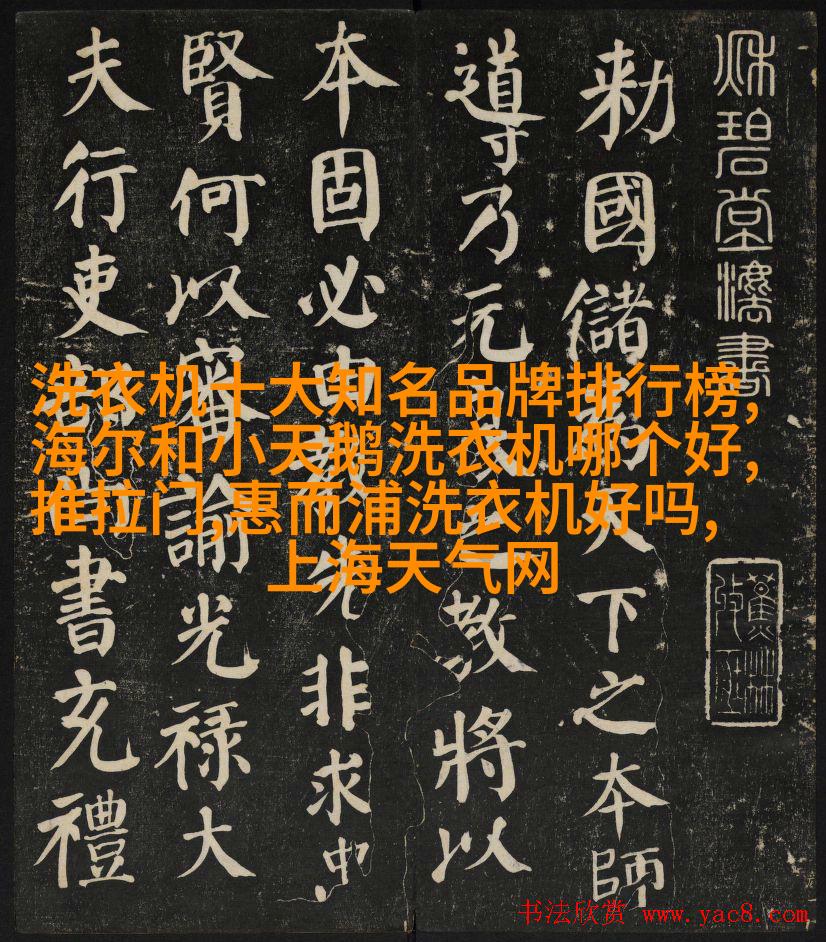 秋碧堂灋書
勑國儲為天下之本師
導乃元良之教將以
本固必由教先非求中
賢何以審諭光禄大
夫行吏部尚書充禮
洗衣机十大知名品牌排行榜,
海尔和小天鹅洗衣机哪个好,
推拉门,惠而浦洗衣机好吗,
上海天气网
书法欣赏 www.yac8.com